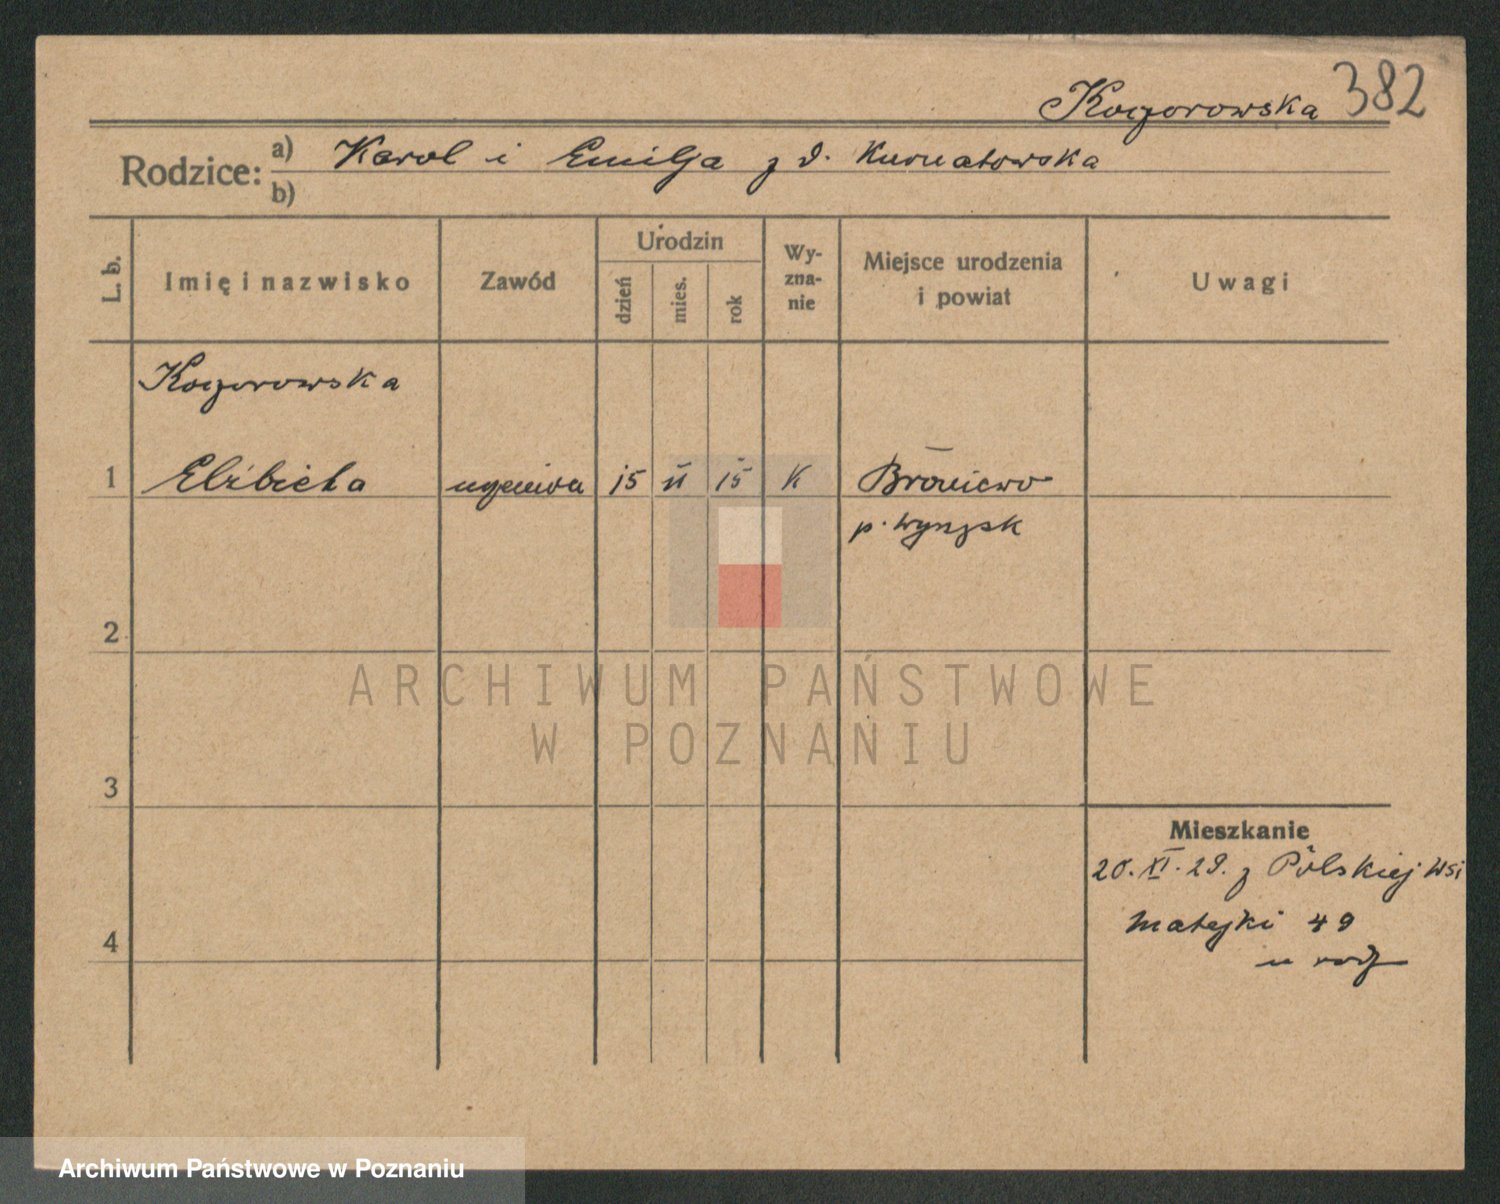 Kogorowska 382
Rodzice: a) Karol i Emilja z d. Kurnatowska
b)
L. b.
Imię i nazwisko
Zawód
Urodzin
dzień
mies.
rok
Wy-
zna-
nie
Miejsce urodzenia
i powiat
Uwagi
Kogorowska
1 Elżbieta uczenica 15 II 15 K Broniewo
p. Wyrzysk
2
3
4
Mieszkanie
20. XI. 29. z Polskiej Wsi
Matejki 49
u rodz
ARCHIWUM PAŃSTWOWE
W POZNANIU
Archiwum Państwowe w Poznaniu